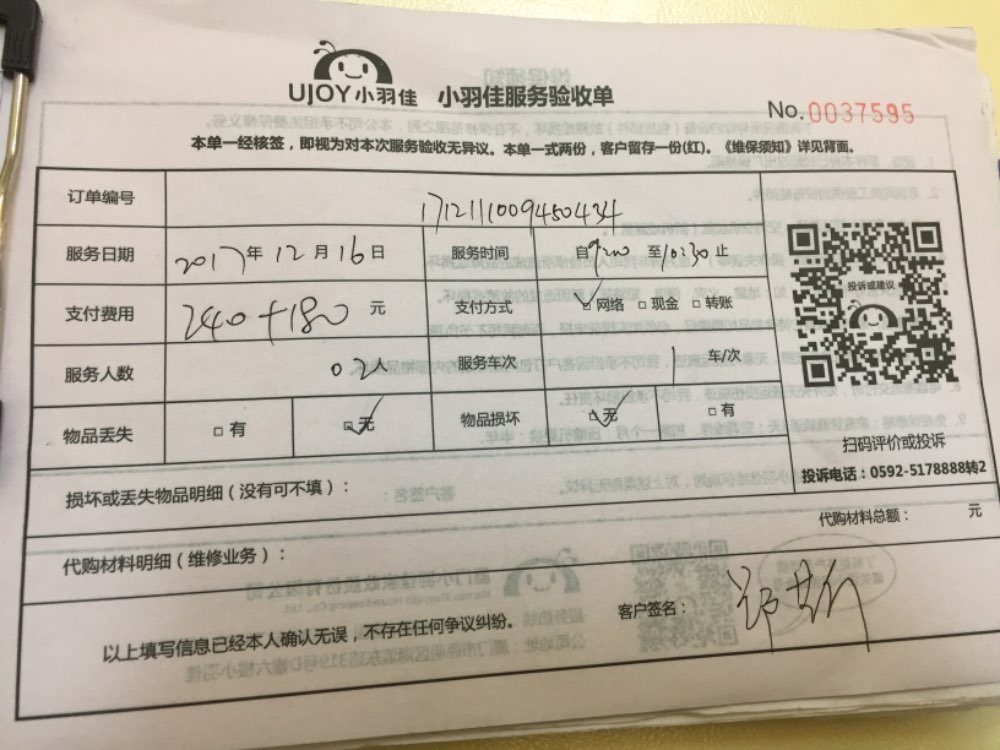 UJOY小羽佳 小羽佳服务验收单
No.0037595
本单一经核签，即视为对本次服务验收无异议。本单一式两份，客户留存一份(红)。《维保须知》详见背面。
订单编号 1712111009450434
服务日期 2017年12月16日 服务时间 自9:00至10:30止
支付费用 240+180元 支付方式 ☑网络 □现金 □转账
投诉或建议
服务人数 02 服务车次 1车/次
物品丢失 □有 ☑无 物品损坏 ☑无 □有
扫码评价或投诉
投诉电话：0592-5178888转2
损坏或丢失物品明细（没有可不填）：
代购材料总额： 元
代购材料明细（维修业务）：
客户签名：
以上填写信息已经本人确认无误，不存在任何争议纠纷。